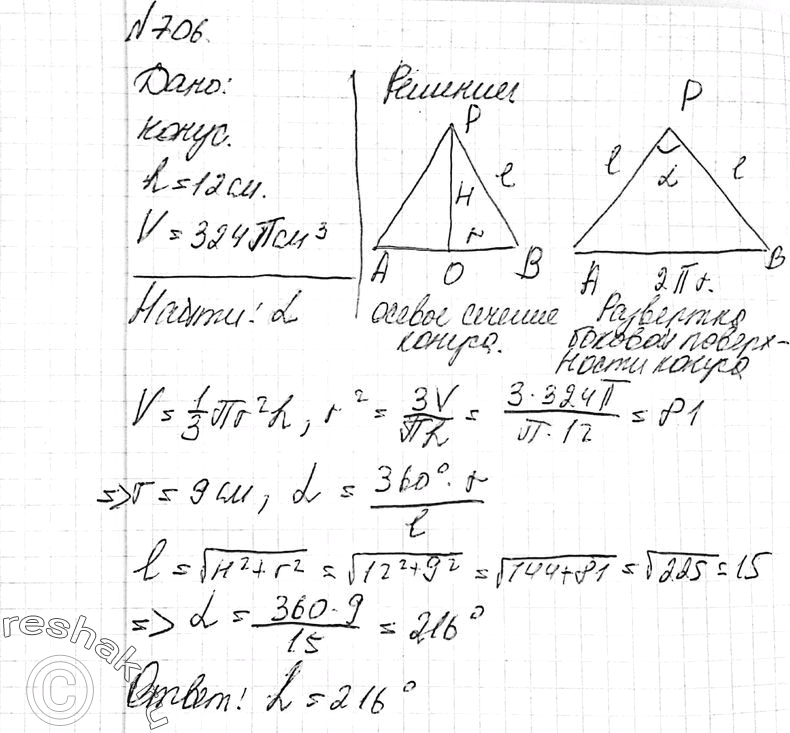 №706.
Дано:
конус.
h = 12 см.
V = 324π см³
Найти: α
Решение
P
H
l
r
A O B
осевое сечение
конуса.
P
l α l
A 2πr. B
Развертка
боковой поверх-
ности конуса
V = 1/3 πr²h, r² = 3V/πh = 3·324π/π·12 = 81
=> r = 9 см, α = 360°·r/l
l = √H²+r² = √12²+9² = √144+81 = √225 = 15
=> α = 360·9/15 = 216°
Ответ: α = 216°
reshak.ru
©